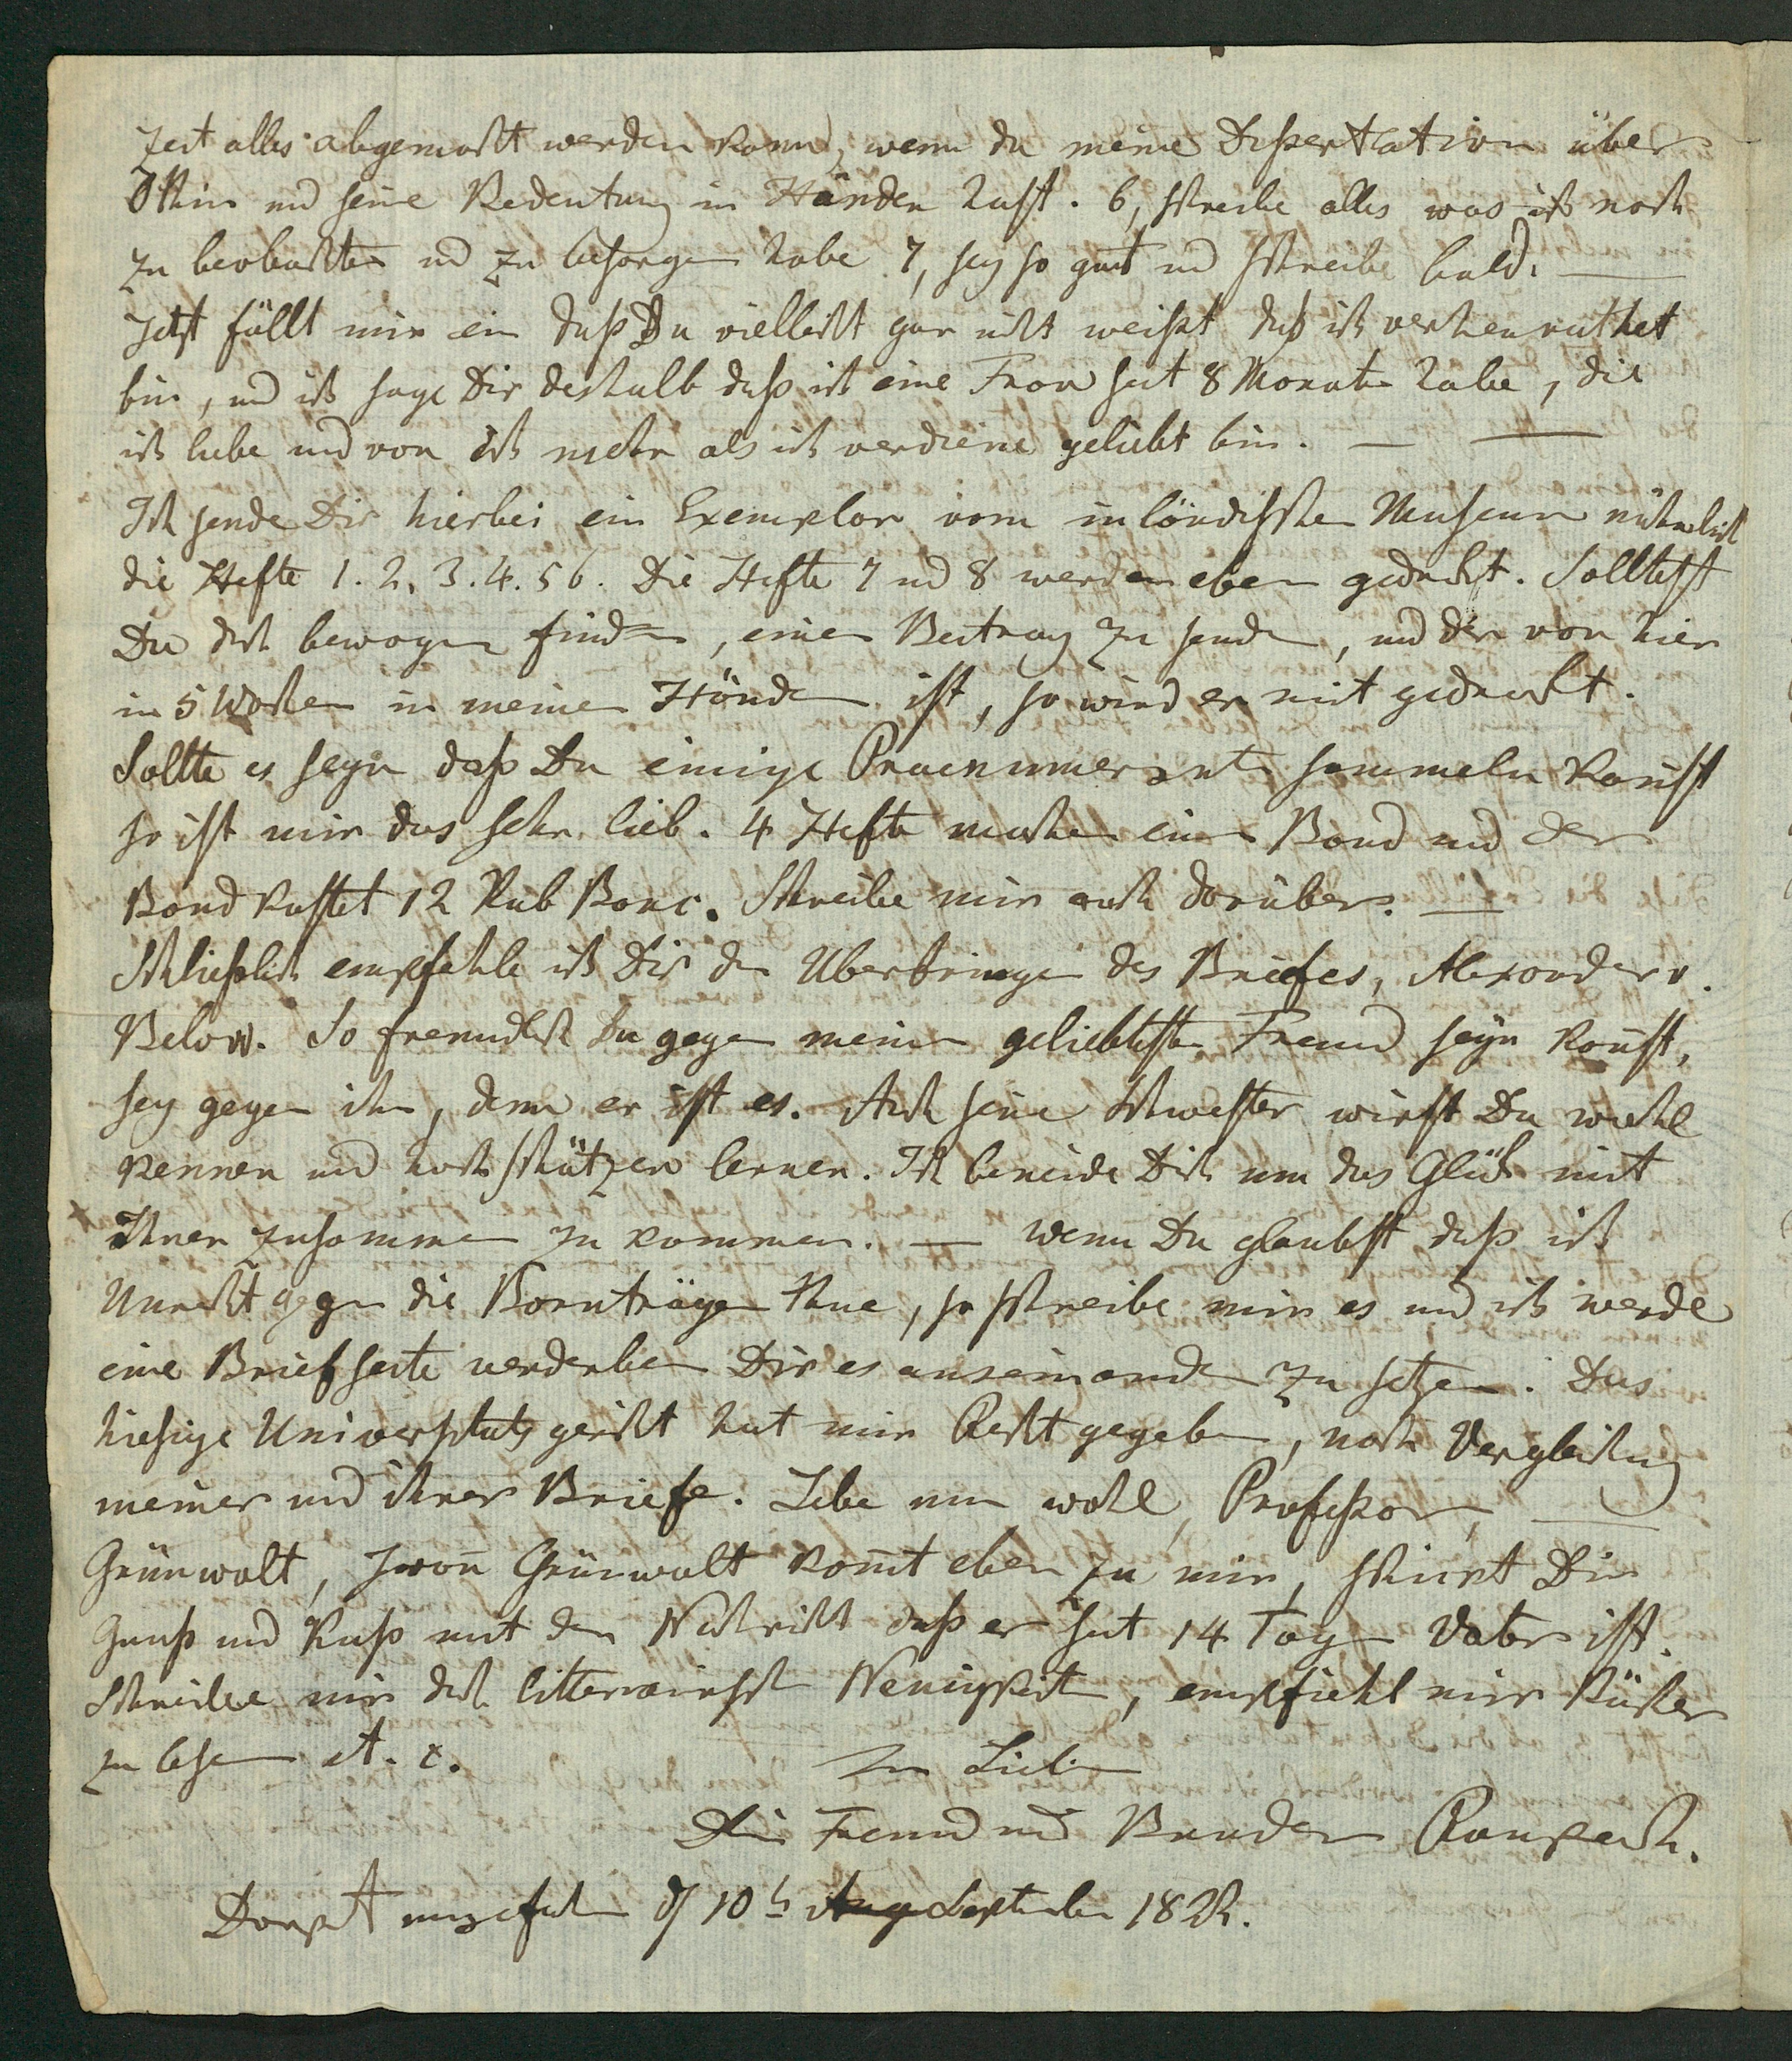 Zeit alles abgemacht werden kann, wenn du meine Dissertation über
Othin und seine Bedeutung in Händen hast. 6, schreibe alles was ich noch
zu beobachten und zu besorgen habe 7, sey so gut und schreibe bald. —
Jetzt fällt mir ein daß Du vielleicht gar nicht weißt daß ich verheurathet
bin, und ich sage Dir deshalb daß ich eine Frau seit 8 Monate habe, die
ich liebe und von ich mehr als ich verdiene geliebt bin. — —
Ich sende Dir hierbei ein Exemplar vom inländischen Museum nähmlich
die Hefte 1. 2. 3. 4. 5 6. Die Hefte 7 und 8 werden eben gedruckt. Solltest
Du dich bewogen finden, einen Beitrag zu senden, und der von hier
in 5 Wochen in meinen Händen ist, so wird er mit gedruckt.
Sollte es seyn daß Du einige Praenumeranten sammeln kannst
so ist mir das sehr lieb. 4 Hefte machen einen Band und der
Band kostet 12 Rub Banc. Schreibe mir auch darüber. —
Schließlich empfehle ich Dir den Uberbringer des Briefes, Alexander v.
Below. So freundlich Du gegen meinen geliebtesten Freund seyn kanst,
sey gegen ihn, denn er ist es. Auch seine Schwester wirst Du wohl
kennen und hochschätzen lernen. Ich beneide Dich um das Glück mit
Ihnen zusammen zu kommen. — Wenn Du glaubst daß ich
Unrecht gegen die Bornträger thue, so schreibe mir es und ich werde
eine Briefseite verderben Dir es auseinander zu setzen. Das
hiesige Universitätsgericht hat mir Recht gegeben, nach Vergleichung
meiner und ihrer Briefe. Lebe nun wohl, Professor, —
Grünwalt, Iwan Grünwalt komt eben zu mir, schickt Dir
Gruß und Kuß mit der Nachricht daß er seit 14 Tagen Vater ist.
Schreibe mir doch litterairische Neuigkeiten, empfiehl mir Bücher
zu lesen et. c.
In Liebe
Dein Freund und Bruder Raupach.
Dorpat ungefähr d 10t September 182